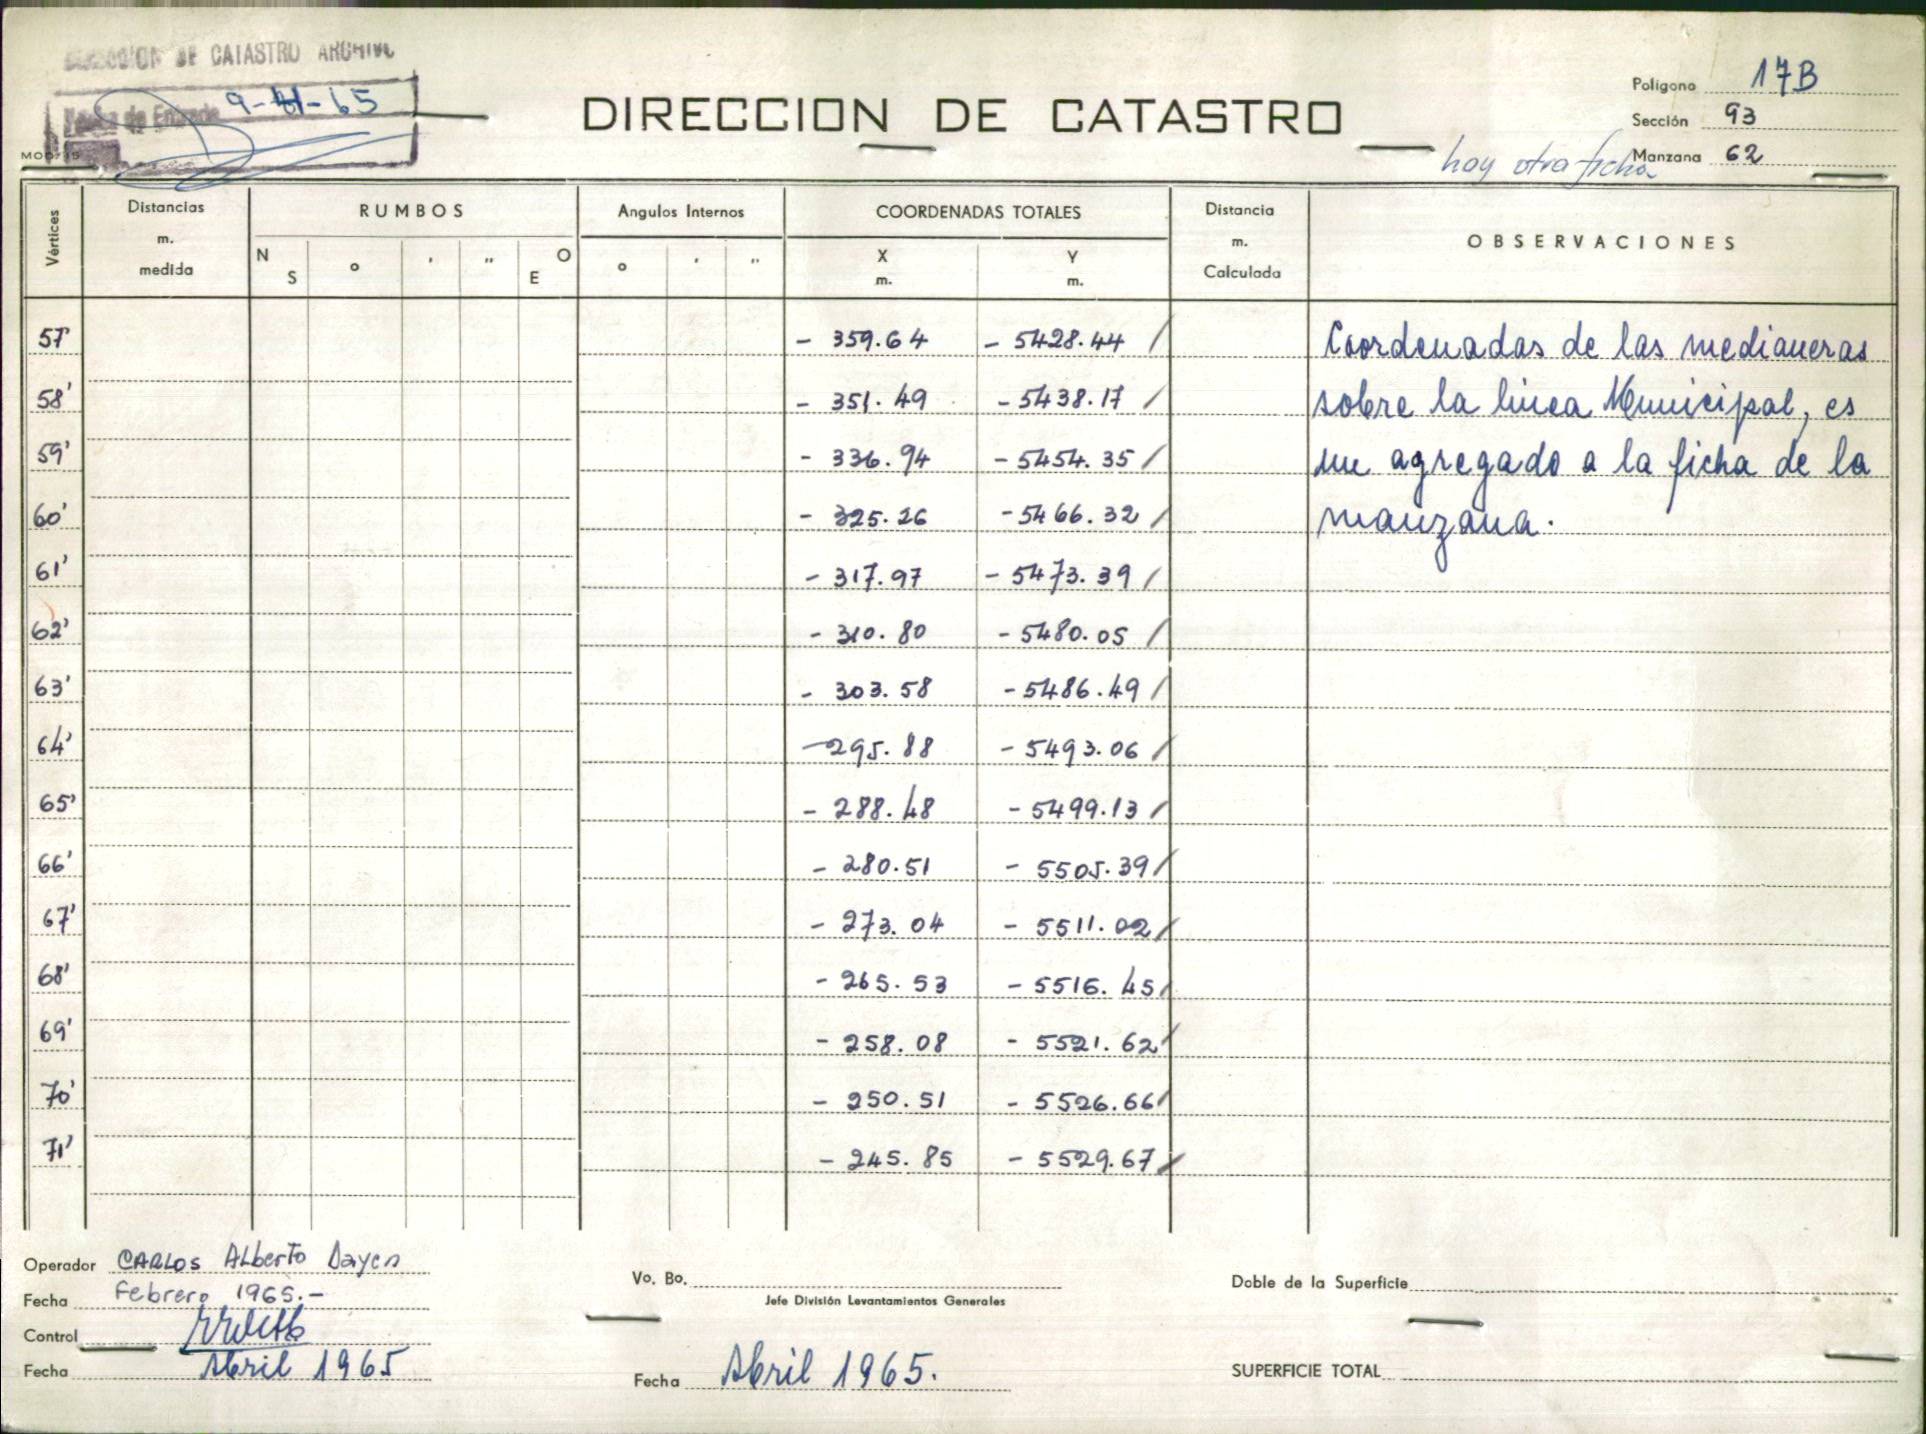 DIRECCION DE CATASTRO ARCHIVO
Fecha de Entrada 9- -65
MOD. 15
DIRECCION DE CATASTRO
Polígono 17B
Sección 93
Manzana 62
hay otra ficha
Vértices
Distancias m. medida
RUMBOS
N S ° ' " E O
Angulos Internos
° ' "
COORDENADAS TOTALES
X m. Y m.
Distancia m. Calculada
OBSERVACIONES
57' - 359.64 - 5428.44 / Coordenadas de las medianeras
58' - 351.49 - 5438.17 / sobre la linea Municipal, es
59' - 336.94 - 5454.35 / un agregado a la ficha de la
60' - 325.26 - 5466.32 / manzana.
61' - 317.97 - 5473.39 /
62' - 310.80 - 5480.05 /
63' - 303.58 - 5486.49 /
64' - 295.88 - 5493.06 /
65' - 288.48 - 5499.13 /
66' - 280.51 - 5505.39 /
67' - 273.04 - 5511.02 /
68' - 265.53 - 5516.45 /
69' - 258.08 - 5521.62 /
70' - 250.51 - 5526.66 /
71' - 245.85 - 5529.67 /
Operador CARLOS Alberto Dayen
Fecha Febrero 1965.-
Control
Fecha Abril 1965
Vo. Bo.
Jefe División Levantamientos Generales
Fecha Abril 1965.
Doble de la Superficie
SUPERFICIE TOTAL